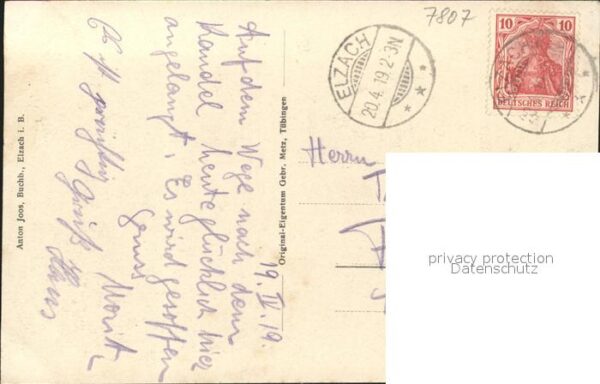 7807
10 10
DEUTSCHES REICH
ELZACH
20.4.19.2-3N
19. IV. 19.
Auf dem Wege nach dem
Kandel heute glücklich hier
angelangt. Es wird gesoffen
Gruss
Moritz
Gruß Hans
Herrn
Anton Joos, Buchh., Elzach i. B.
Original-Eigentum Gebr. Metz, Tübingen
privacy protection
Datenschutz